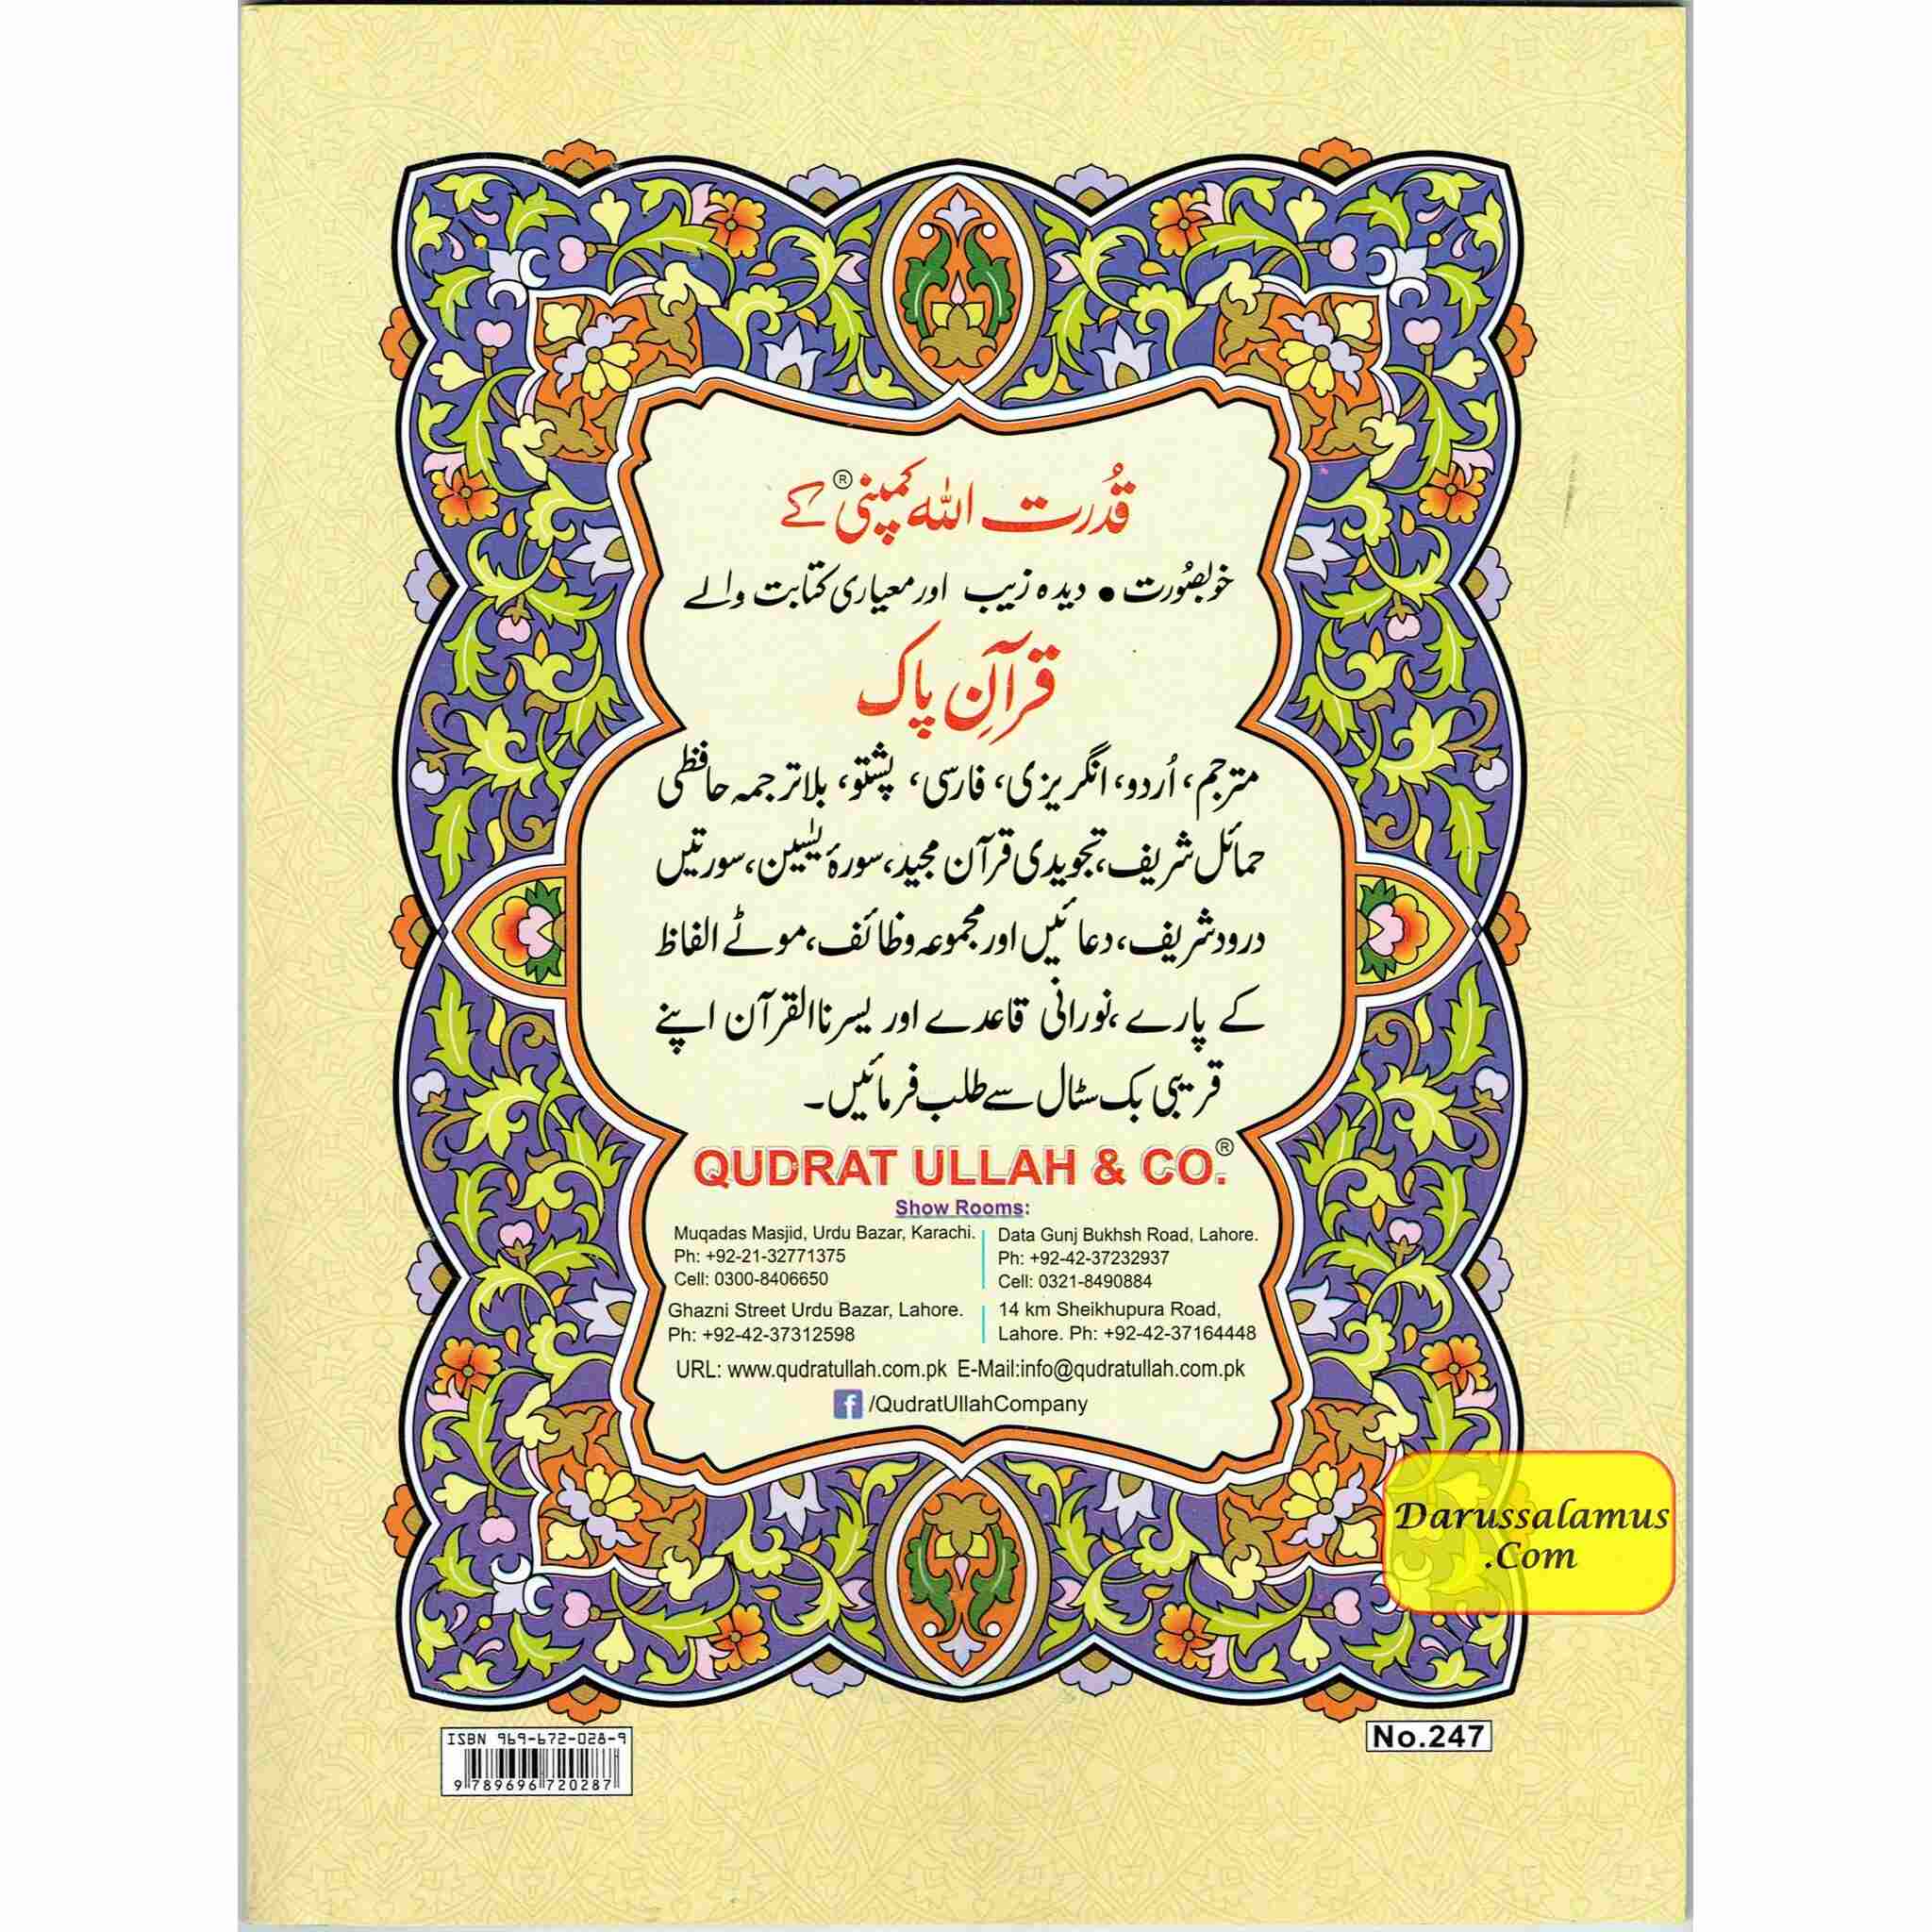 قُدرت اللہ کمپنی® کے
خوبصُورت • دیدہ زیب اور معیاری کتابت والے
قرآنِ پاک
مترجم، اُردو، انگریزی، فارسی، پشتو، بلاترجمہ حافظی
حمائل شریف، تجویدی قرآن مجید، سورۂ یٰسین، سورتیں
درود شریف، دعائیں اور مجموعہ وظائف، موٹے الفاظ
کے پارے، نورانی قاعدے اور یسرناالقرآن اپنے
قریبی بک سٹال سے طلب فرمائیں۔
QUDRAT ULLAH & CO.®
Show Rooms:
Muqadas Masjid, Urdu Bazar, Karachi.
Ph: +92-21-32771375
Cell: 0300-8406650
Data Gunj Bukhsh Road, Lahore.
Ph: +92-42-37232937
Cell: 0321-8490884
Ghazni Street Urdu Bazar, Lahore.
Ph: +92-42-37312598
14 km Sheikhupura Road,
Lahore. Ph: +92-42-37164448
URL: www.qudratullah.com.pk E-Mail:info@qudratullah.com.pk
f /QudratUllahCompany
Darussalamus
.Com
ISBN 969-672-028-9
9 789696 720287
No.247